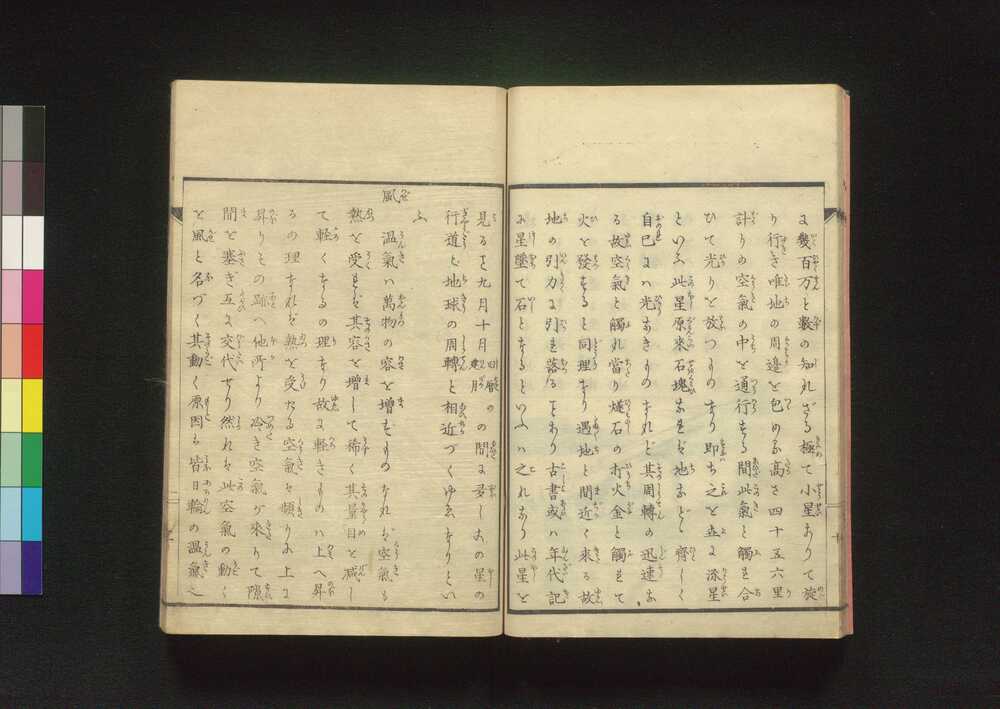 に幾百万と数の知れざる極て小星ありて旋
り行き唯地の周邉を包める高さ四十五六里
計りの空氣の中を通行する間此氣と觸れ合
ひて光りを放つものあり即ち之を立に添星
といふ此星原来石塊なれば地などゝ齊しく
自己には光なきものなれど其周轉の迅速な
る故空氣と觸れ當り燧石の打火金と觸れて
火を發すると同理なり遇地と間近く来る故
地の引力に引れ落るとあり古書或は年代記
に星墜て石となるといふは之れなり此星を
見るは九月十月旧暦の間に多しこの星の
行道と地球の周轉と相近づくゆゑなりとい
ふ
風
温氣は萬物の容を増すものなれば空氣も
熱を受れば其容を増して稀く其量目を減し
て軽くなるの理なり故に軽きものは上へ昇
るの理なれば熱を受たる空氣は頻りに上に
昇りその跡へ他所より冷き空氣が来りて隙
間を塞ぎ互に交代せり然れば此空氣の動く
を風と名づく其動く原因は皆日輪の温氣之